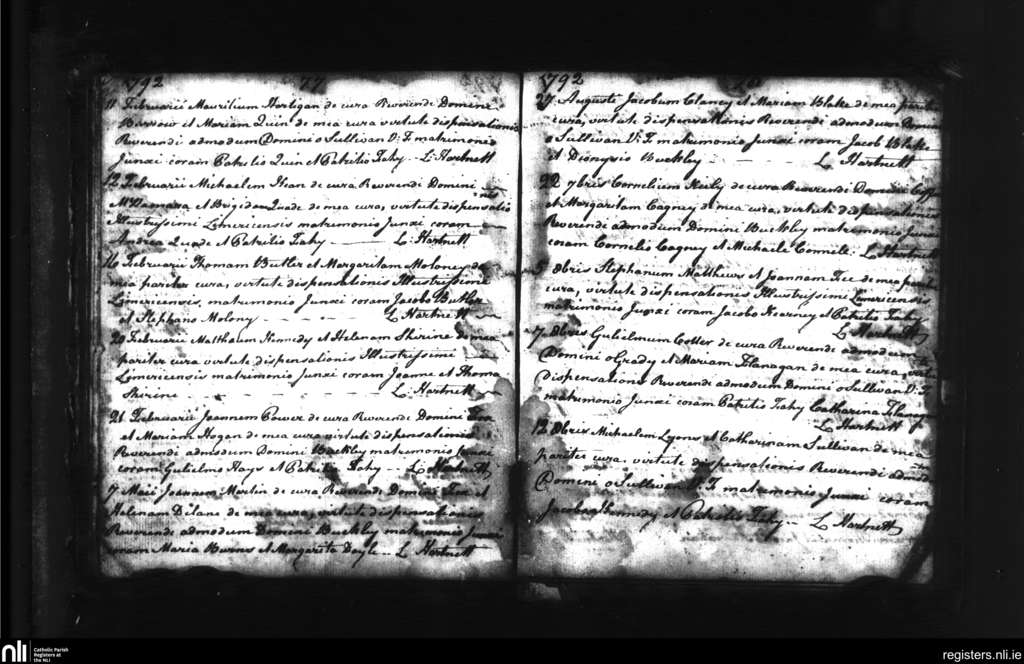 1792 77
11 Februarii Maurilium Hartigan de cura Reverende Domine
Barrow et Mariam Quin de mea cura virtute dispensationis
Reverendi admodum Domini o Sullivan V: F matrimonio
Junxi coram Patritio Quin et Patritio Fahy - L: Hartnett
12 Februarii Michaelem Shan de cura Reverendi Domini
McNamara et Brigidam Quade de mea cura, virtute dispensatio nis
Illustrissimi Limericensis matrimonio Junxi coram
Andrea Quade et Patritio Fahy — L. Hartnett
16 Februarii Thomam Butler et Margaritam Moloney de
mea pariter cura, virtute dispensationis Illustrissimi
Limericensis, matrimonio Junxi coram Jacobo Butler
et Stephano Molony - - - L Hartnett
20 Februarii Matthaeum Kennedy et Helenam Shirine de mea
pariter cura virtute dispensationis Illustrissimi
Limericensis matrimonio Junxi coram Joanne et Thoma
Shirine - - - - L Hartnett
21 Februarii Joannem Power de cura Reverende Domini
et Mariam Hogan de mea cura virtute dispensationis
Reverende admodum Domini Buckley matrimonio Junxi
coram Gulielmo Hays et Patritio Fahy — L. Hartnett
7 Maii Joannem Martin de cura Reverende Domini Fox et
Helenam Dilane de mea cura, virtute dispensationis
Reverende admodum Domini Buckley matrimonio Junxi
coram Maria Burns et Margarita Doyle - L Hartnett
1792
27 Auguste Jacobum Clancy et Mariam Blake de mea pariter
cura, virtute dispensationis Reverendi admodum Domini
o Sullivan V: F matrimonio Junxi coram Jacob Blake
et Dionysio Buckley - - L Hartnett
22 7bris Cornelium Kiely de cura Reverende Domini
et Margaritam Cagney de mea cura, virtute dispensationis
Reverende admodum Domini Buckley matrimonio Junxi
coram Cornelio Cagney et Michaele Connell. L. Hartnett
8bris Stephanum Matthews et Joannam Fee de mea pariter
cura, virtute dispensationis Illustrissime Limericensis
matrimonio Junxi coram Jacobo Kearney et Patritio Fahy
L Hartnett
7 8bris Gulielmum Cotter de cura Reverende admodum
Domini o Grady et Mariam Flanagan de mea cura, virtute
dispensationis Reverende admodum Domini o Sullivan V: F
matrimonio Junxi coram Patritio Fahy Catharina Flanagan
L Hartnett
12 8bris Michaelem Lyons et Catharinam Sullivan de mea
pariter cura, virtute dispensationis Reverendi admodum
Domini o Sullivan V: F matrimonio Junxi coram
Jacobo Kennedy et Patritio Fahy — L Hartnett
nli Catholic Parish
Registers at
the NLI
registers.nli.ie